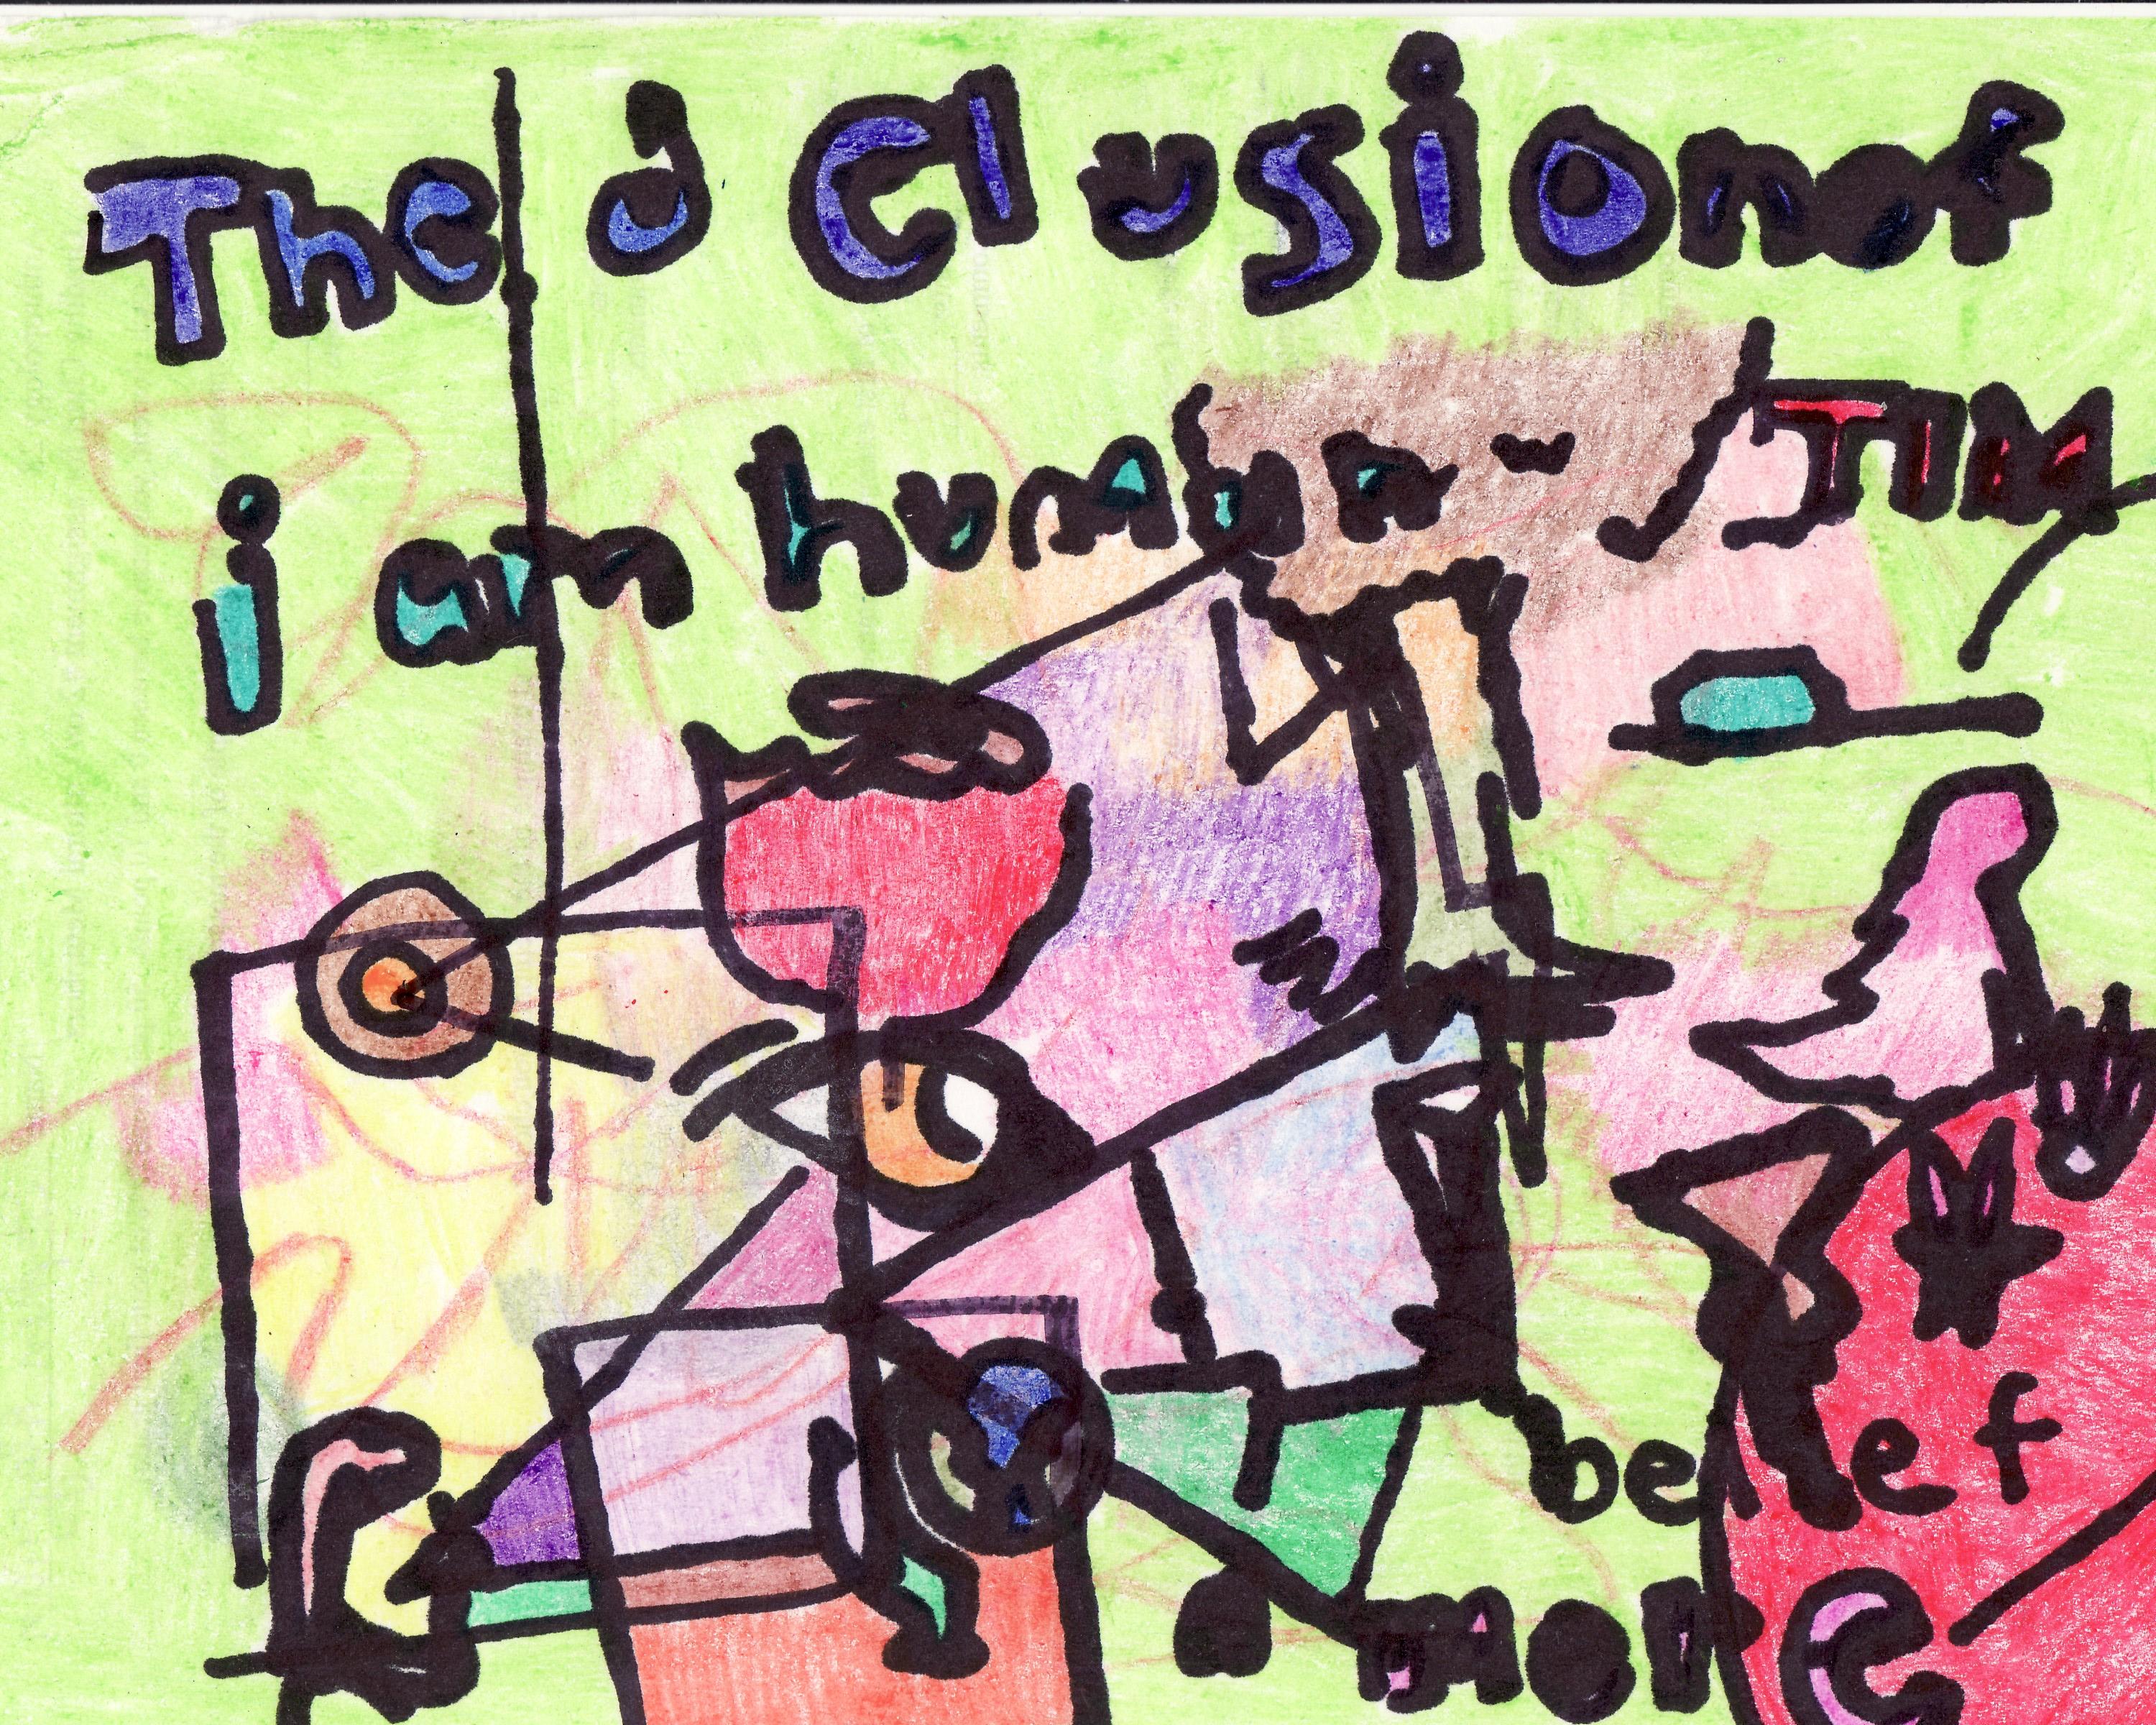 The a Clusion of
i am human - / TIM
belief
a more